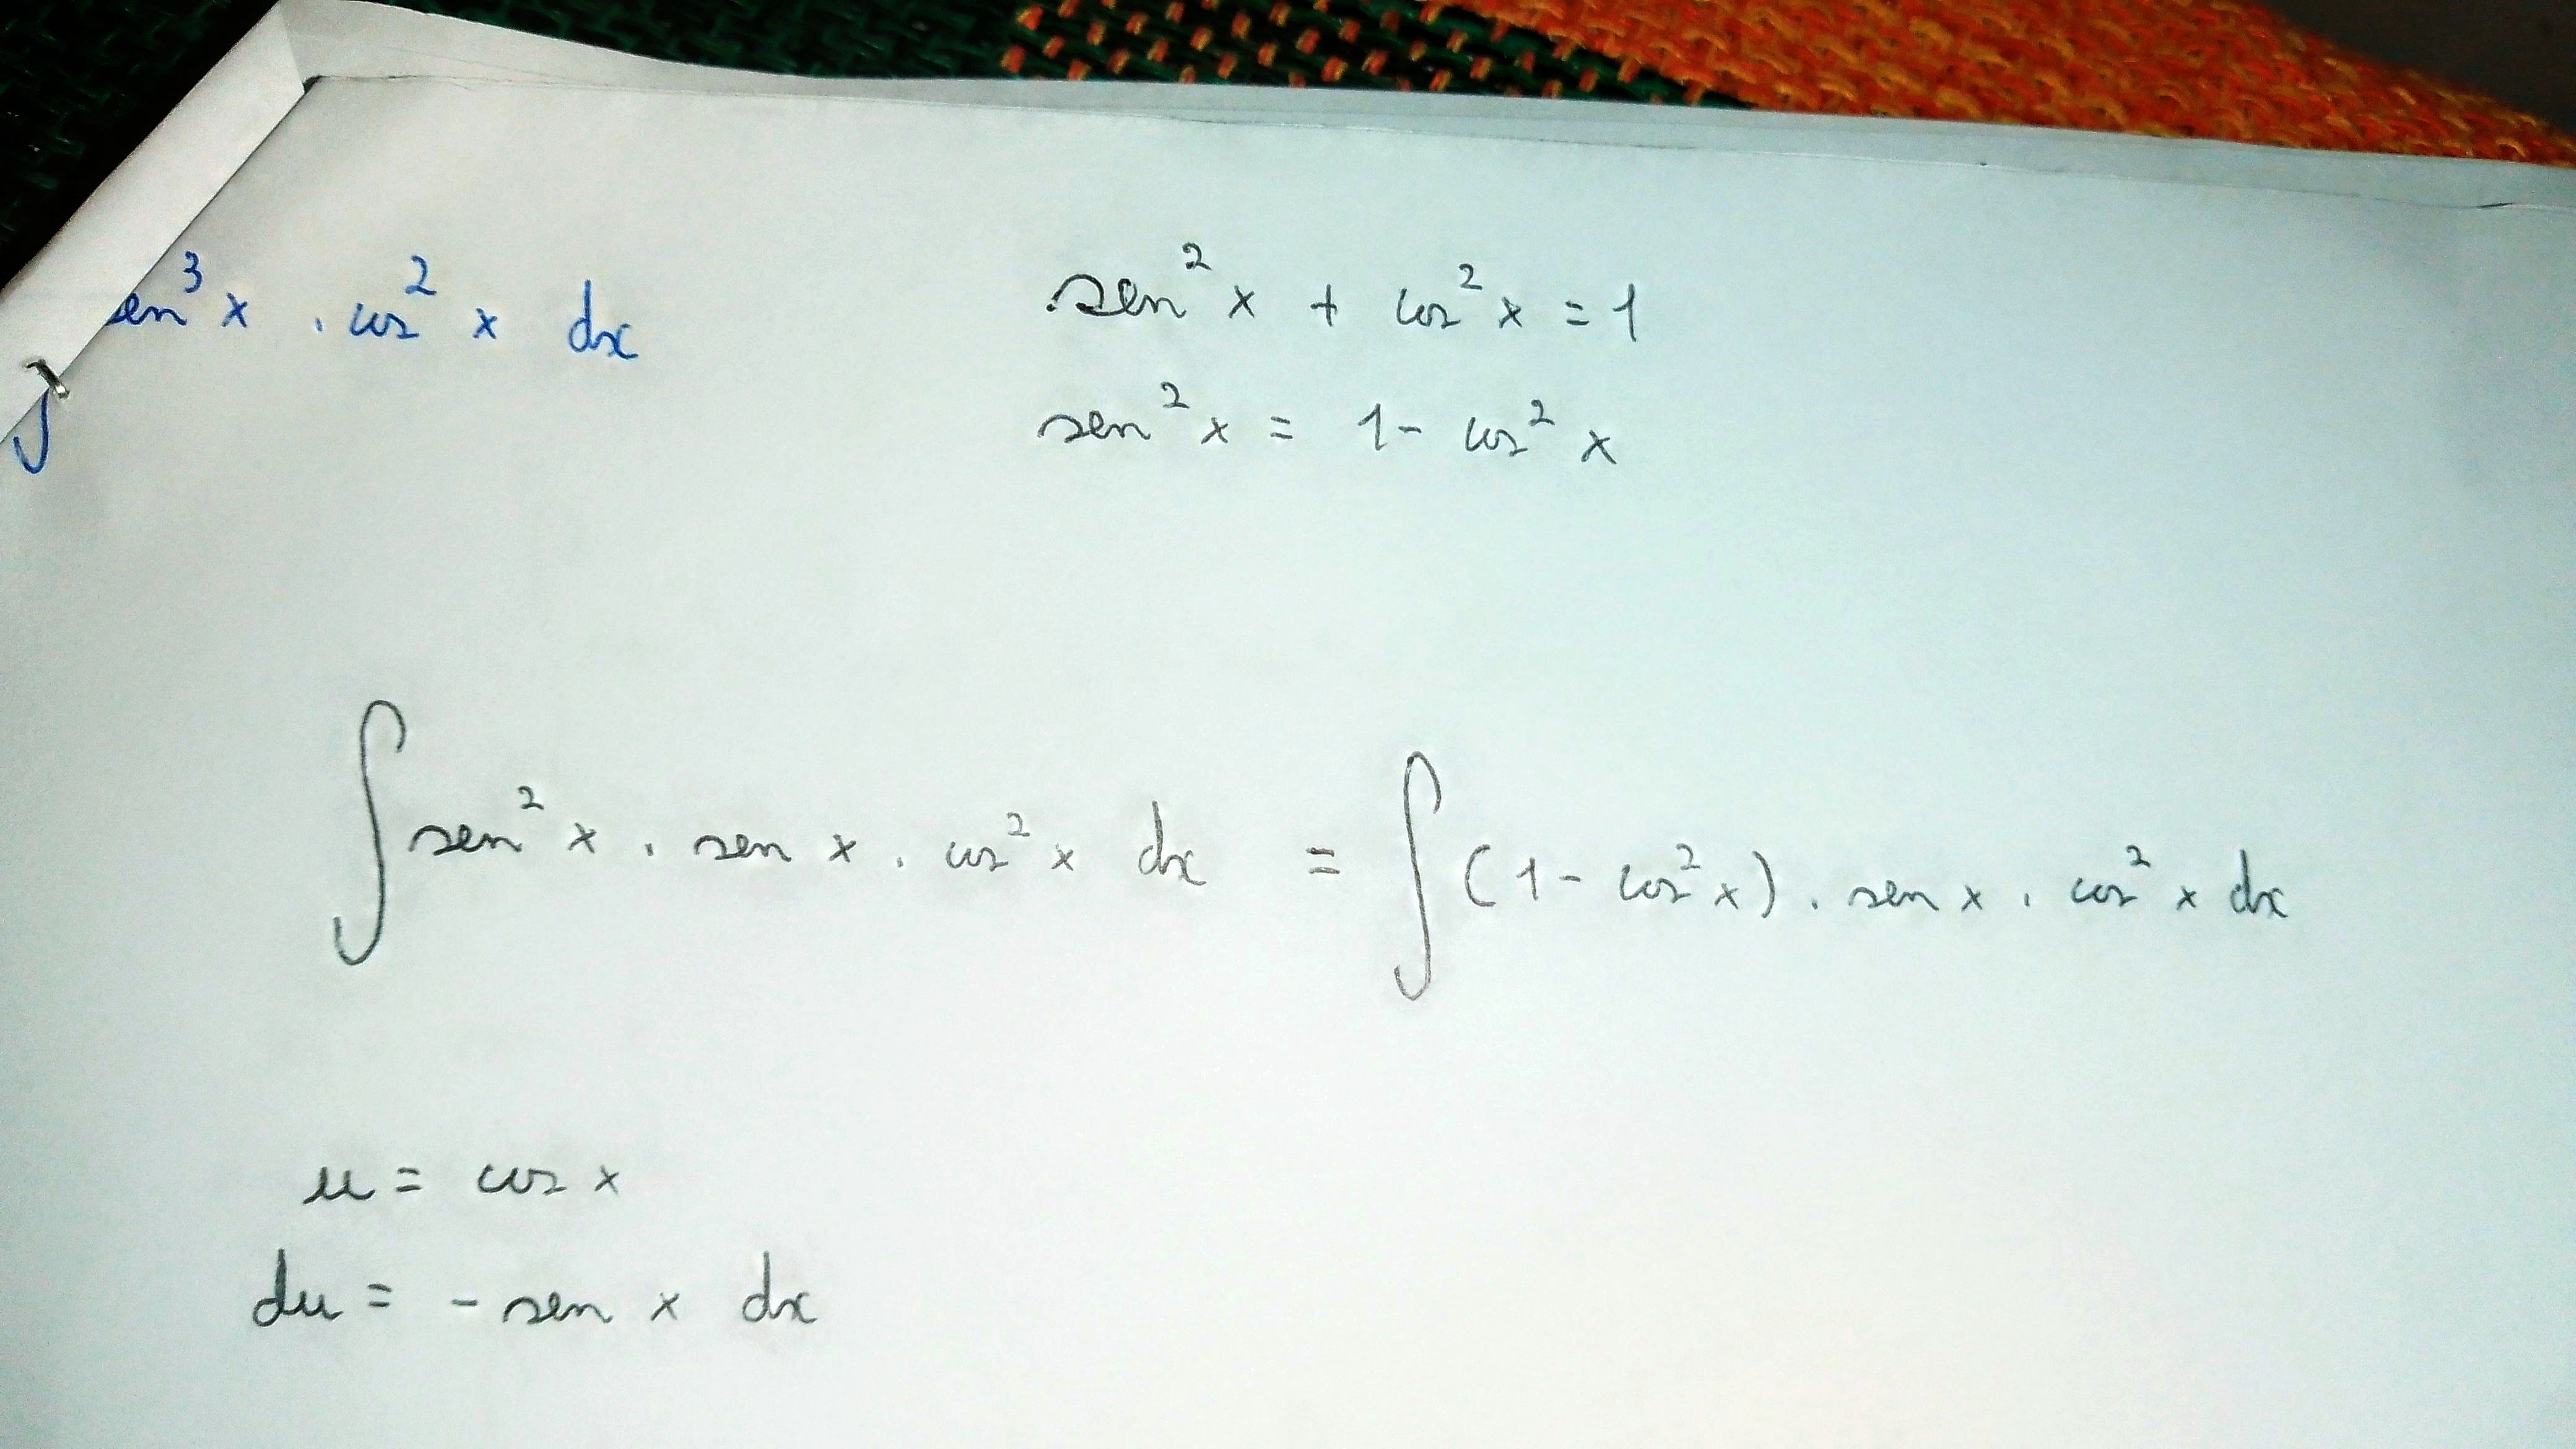 ∫ sen³x . cos² x dx
sen² x + cos² x = 1
sen² x = 1 - cos² x
∫ sen² x . sen x . cos² x dx = ∫ (1 - cos² x) . sen x . cos² x dx
u = cos x
du = - sen x dx